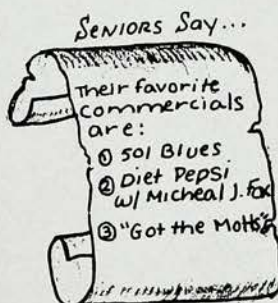 SENIORS SAY...
Their favorite
Commercials
are:
① 501 Blues
② Diet Pepsi
w/ Micheal J. Fox
③ "Got the Motts"